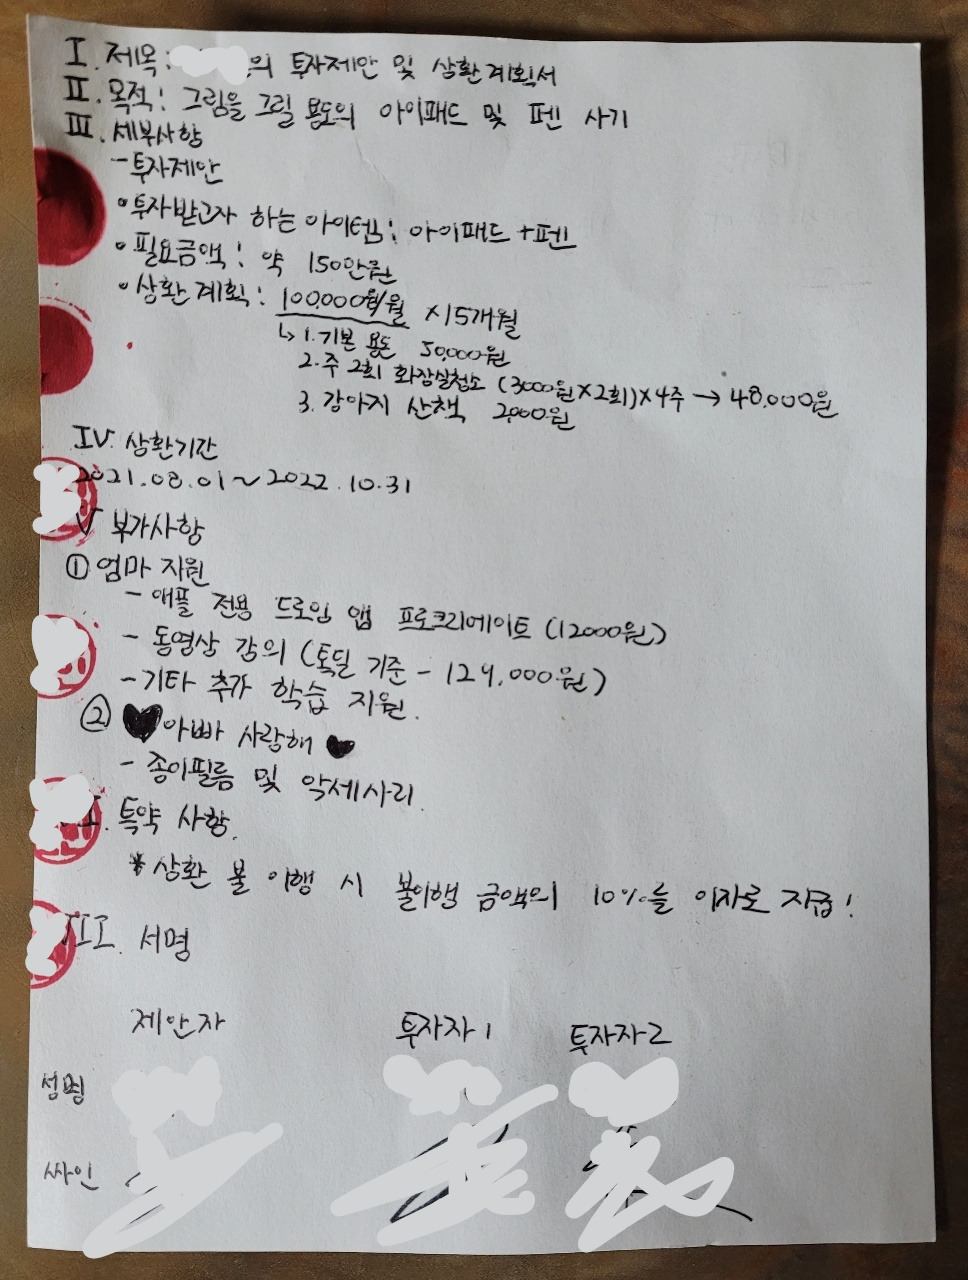 I. 제목: 의 투자제안 및 상환계획서
II. 목적: 그림을 그릴 용도의 아이패드 및 펜 사기
III. 세부사항
- 투자제안
• 투자받고자 하는 아이템: 아이패드 + 펜
• 필요금액: 약 150만원
• 상환계획: 100,000원/월 × 15개월
↳ 1. 기본 용돈 50,000원
2. 주 2회 화장실청소 (3000원×2회)×4주 → 48,000원
3. 강아지 산책 2,000원
IV. 상환기간
2021.08.01 ~ 2022.10.31
V 부가사항
① 엄마 지원
- 애플 전용 드로잉 앱 프로크리에이트 (12000원)
- 동영상 강의 (톡딜 기준 - 129,000원)
- 기타 추가 학습 지원.
② ♥아빠 사랑해 ♥
- 종이필름 및 악세사리.
I. 특약 사항.
* 상환 불 이행 시 불이행 금액의 10%를 이자로 지급!
III. 서명
제안자 투자자1 투자자2
성명
싸인